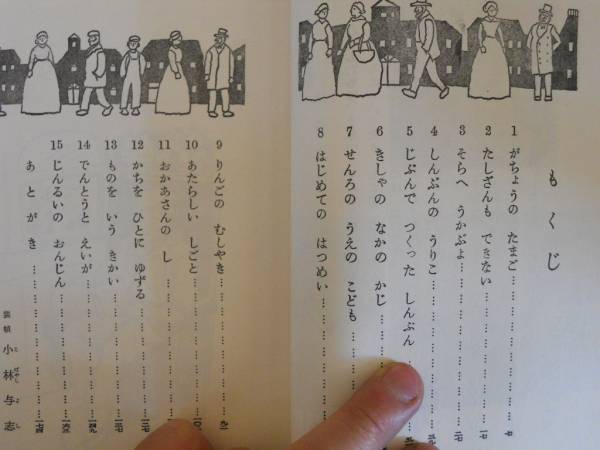 もくじ
1 がちょうの たまご……七
2 たしざんも できない……一七
3 そらへ うかぶよ……二七
4 しんぶんの うりこ……
5 じぶんで つくった しんぶん……
6 きしゃの なかの かじ……
7 せんろの うえの こども……
8 はじめての はつめい……
9 りんごの むしやき……九一
10 あたらしい しごと……
11 おかあさんの し……
12 かちを ひとに ゆずる……一二七
13 ものを いう きかい……一三七
14 でんとうと えいが……一四九
15 じんるいの おんじん……一六三
あとがき……一七四
装幀 小林与志